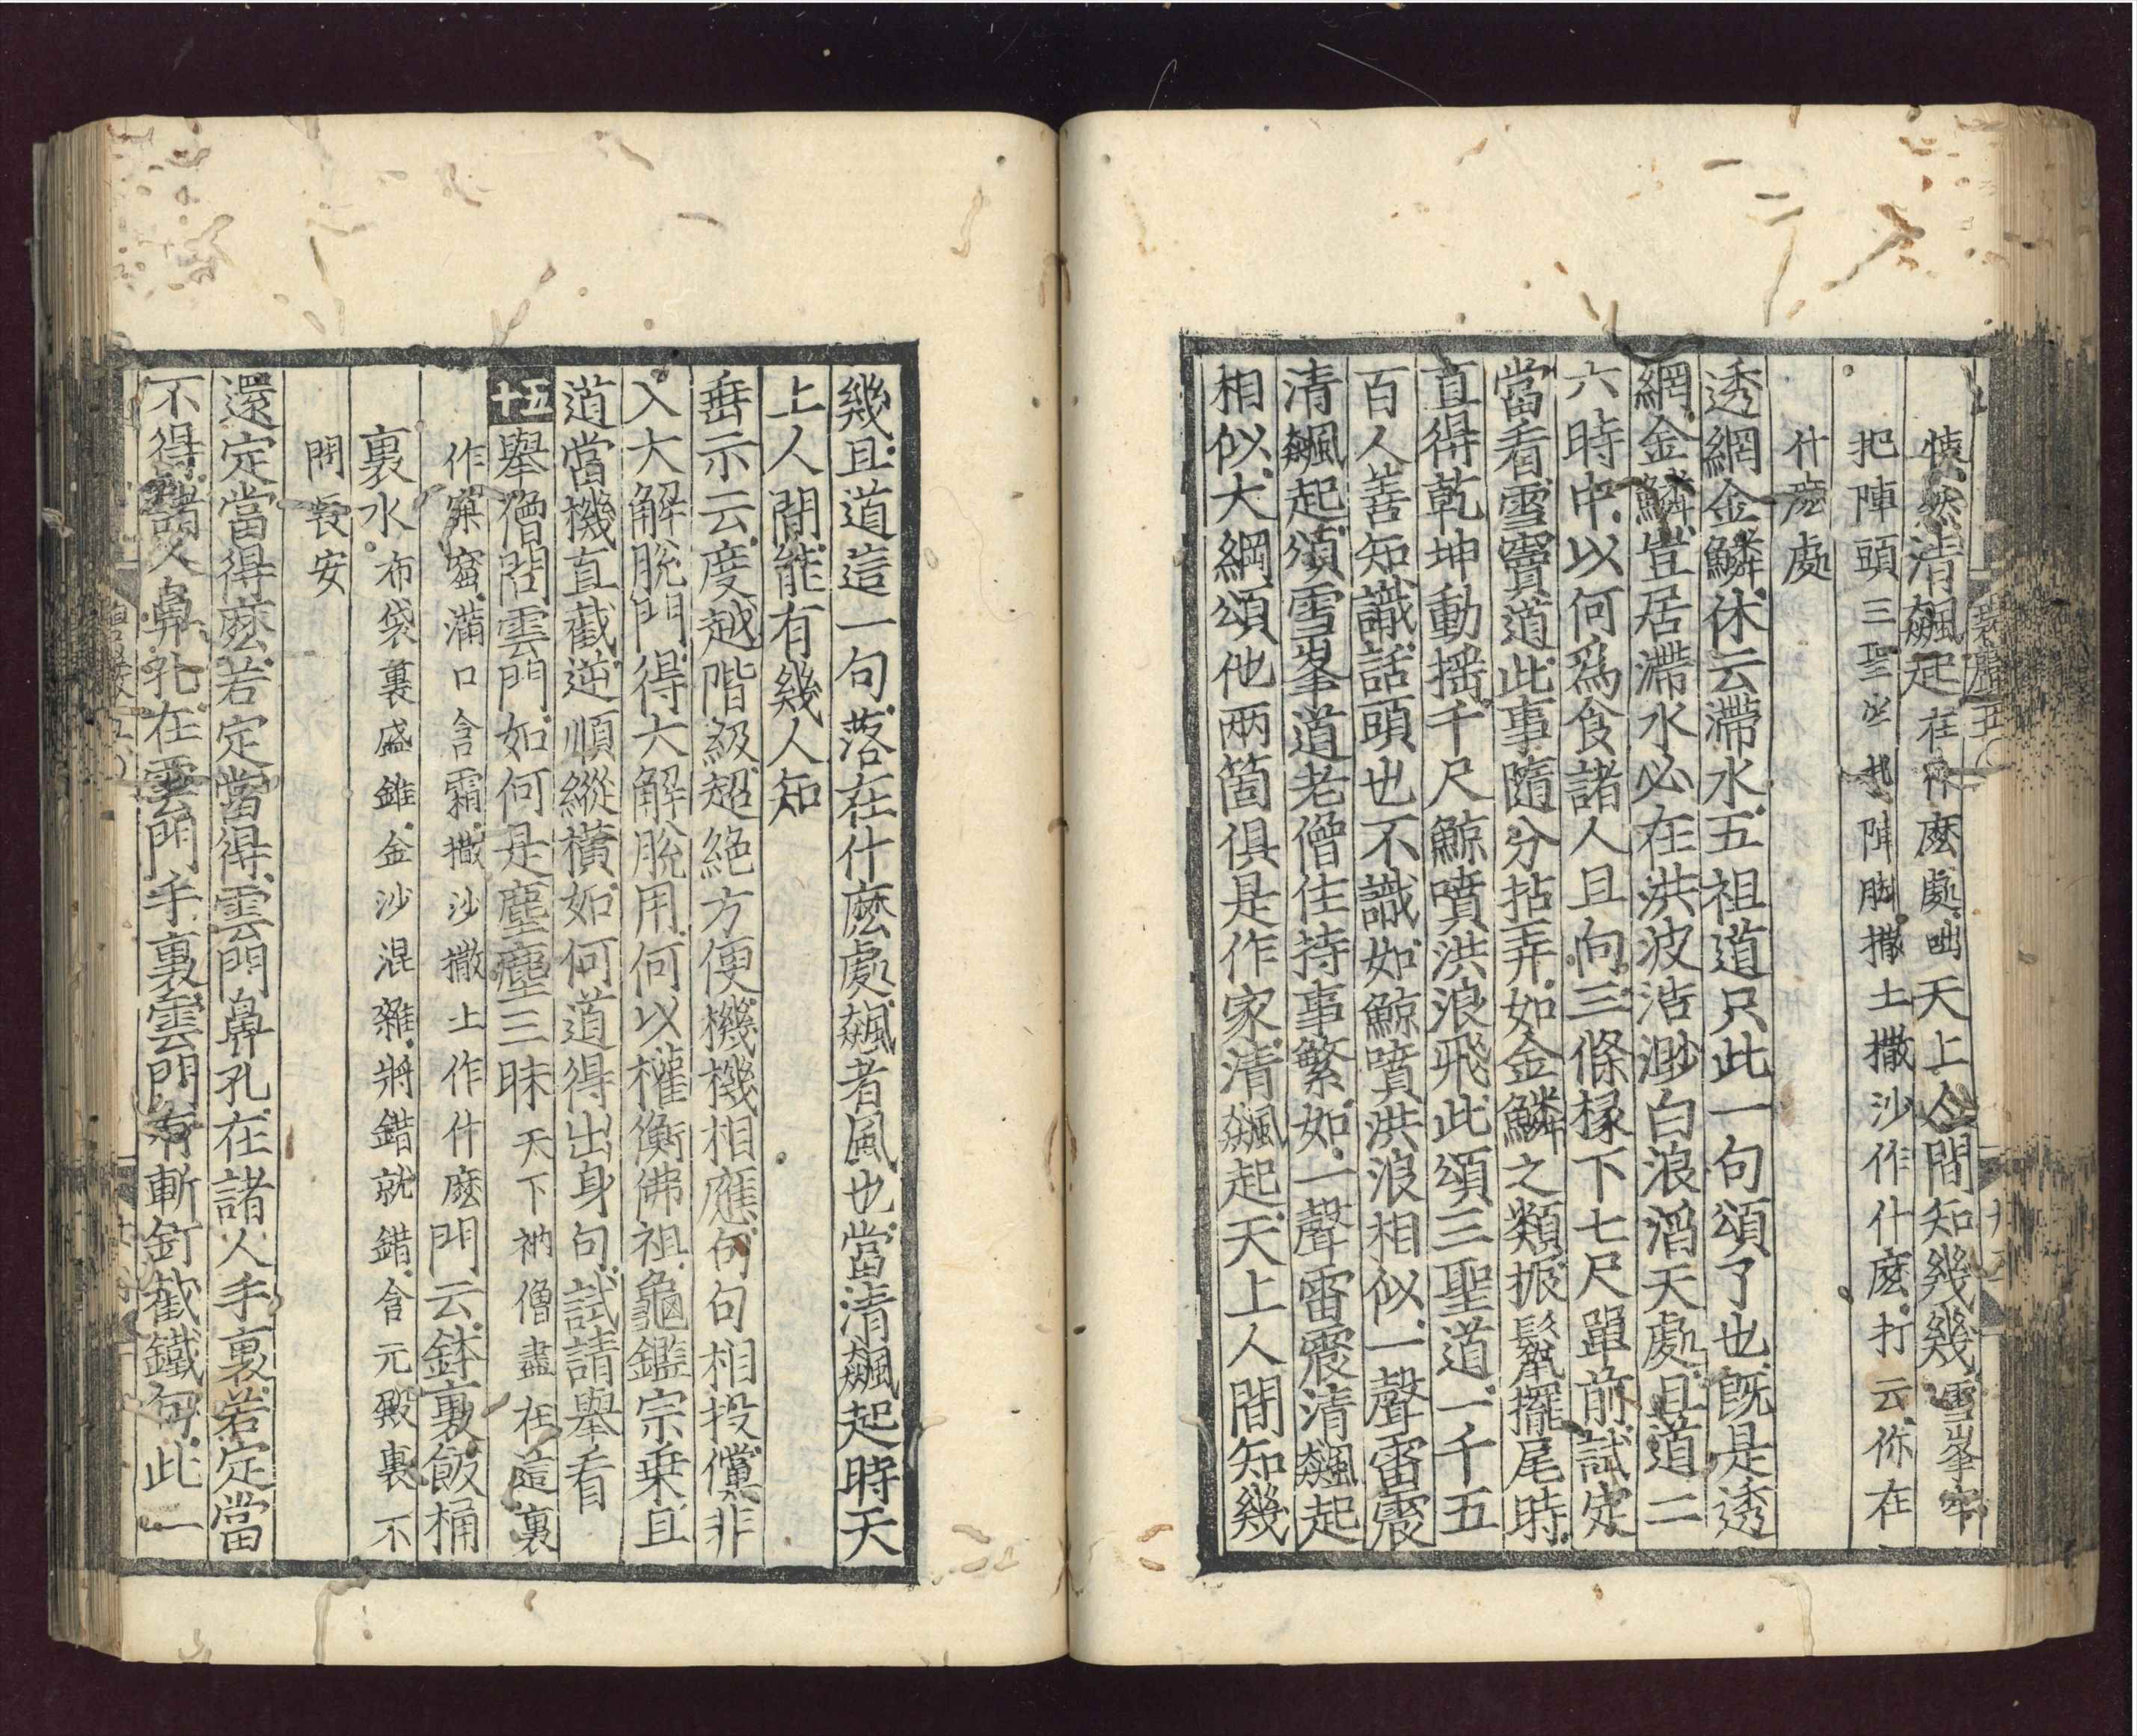 清飈起在什麽處咄天上人間知幾幾雪峯牢
把陣頭三聖牢把陣脚撒土撒沙作什麽打云你在
什麽處
透網金鱗休云滯水五祖道只此一句頌了也旣是透
網金鱗豈居滯水必在洪波浩渺白浪滔天處且道二
六時中以何爲食諸人且向三條椽下七尺單前試定
當看雪竇道此事隨分拈弄如金鱗之類振鬣擺尾時
直得乾坤動搖千尺鯨噴洪浪飛此頌三聖道一千五
百人善知識話頭也不識如鯨噴洪浪相似一聲雷震
清飈起頌雪峯道老僧住持事繁如一聲雷震清飈起
相似大綱頌他兩箇俱是作家清飈起天上人間知幾
幾且道這一句落在什麽處飈者風也當清飈起時天
上人間能有幾人知
垂示云度越階級超絶方便機機相應句句相投儻非
入大解脫門得大解脫用何以權衡佛祖龜鑑宗乗且
道當機直截逆順縱橫如何道得出身句試請舉看
五十舉僧問雲門如何是塵塵三昧天下衲僧盡在這裏
作窠窟滿口含霜撒沙撒土作什麽門云鉢裏飯桶
裏水布袋裏盛錐金沙混雜將錯就錯含元殿裏不
問長安
還定當得麽若定當得雲門鼻孔在諸人手裏若定當
不得諸人鼻孔在雲門手裏雲門有斬釘截鐵句此一